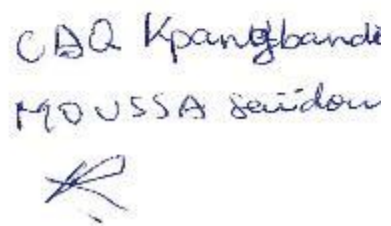 CDQ Kpangbande
MOUSSA Seïdou